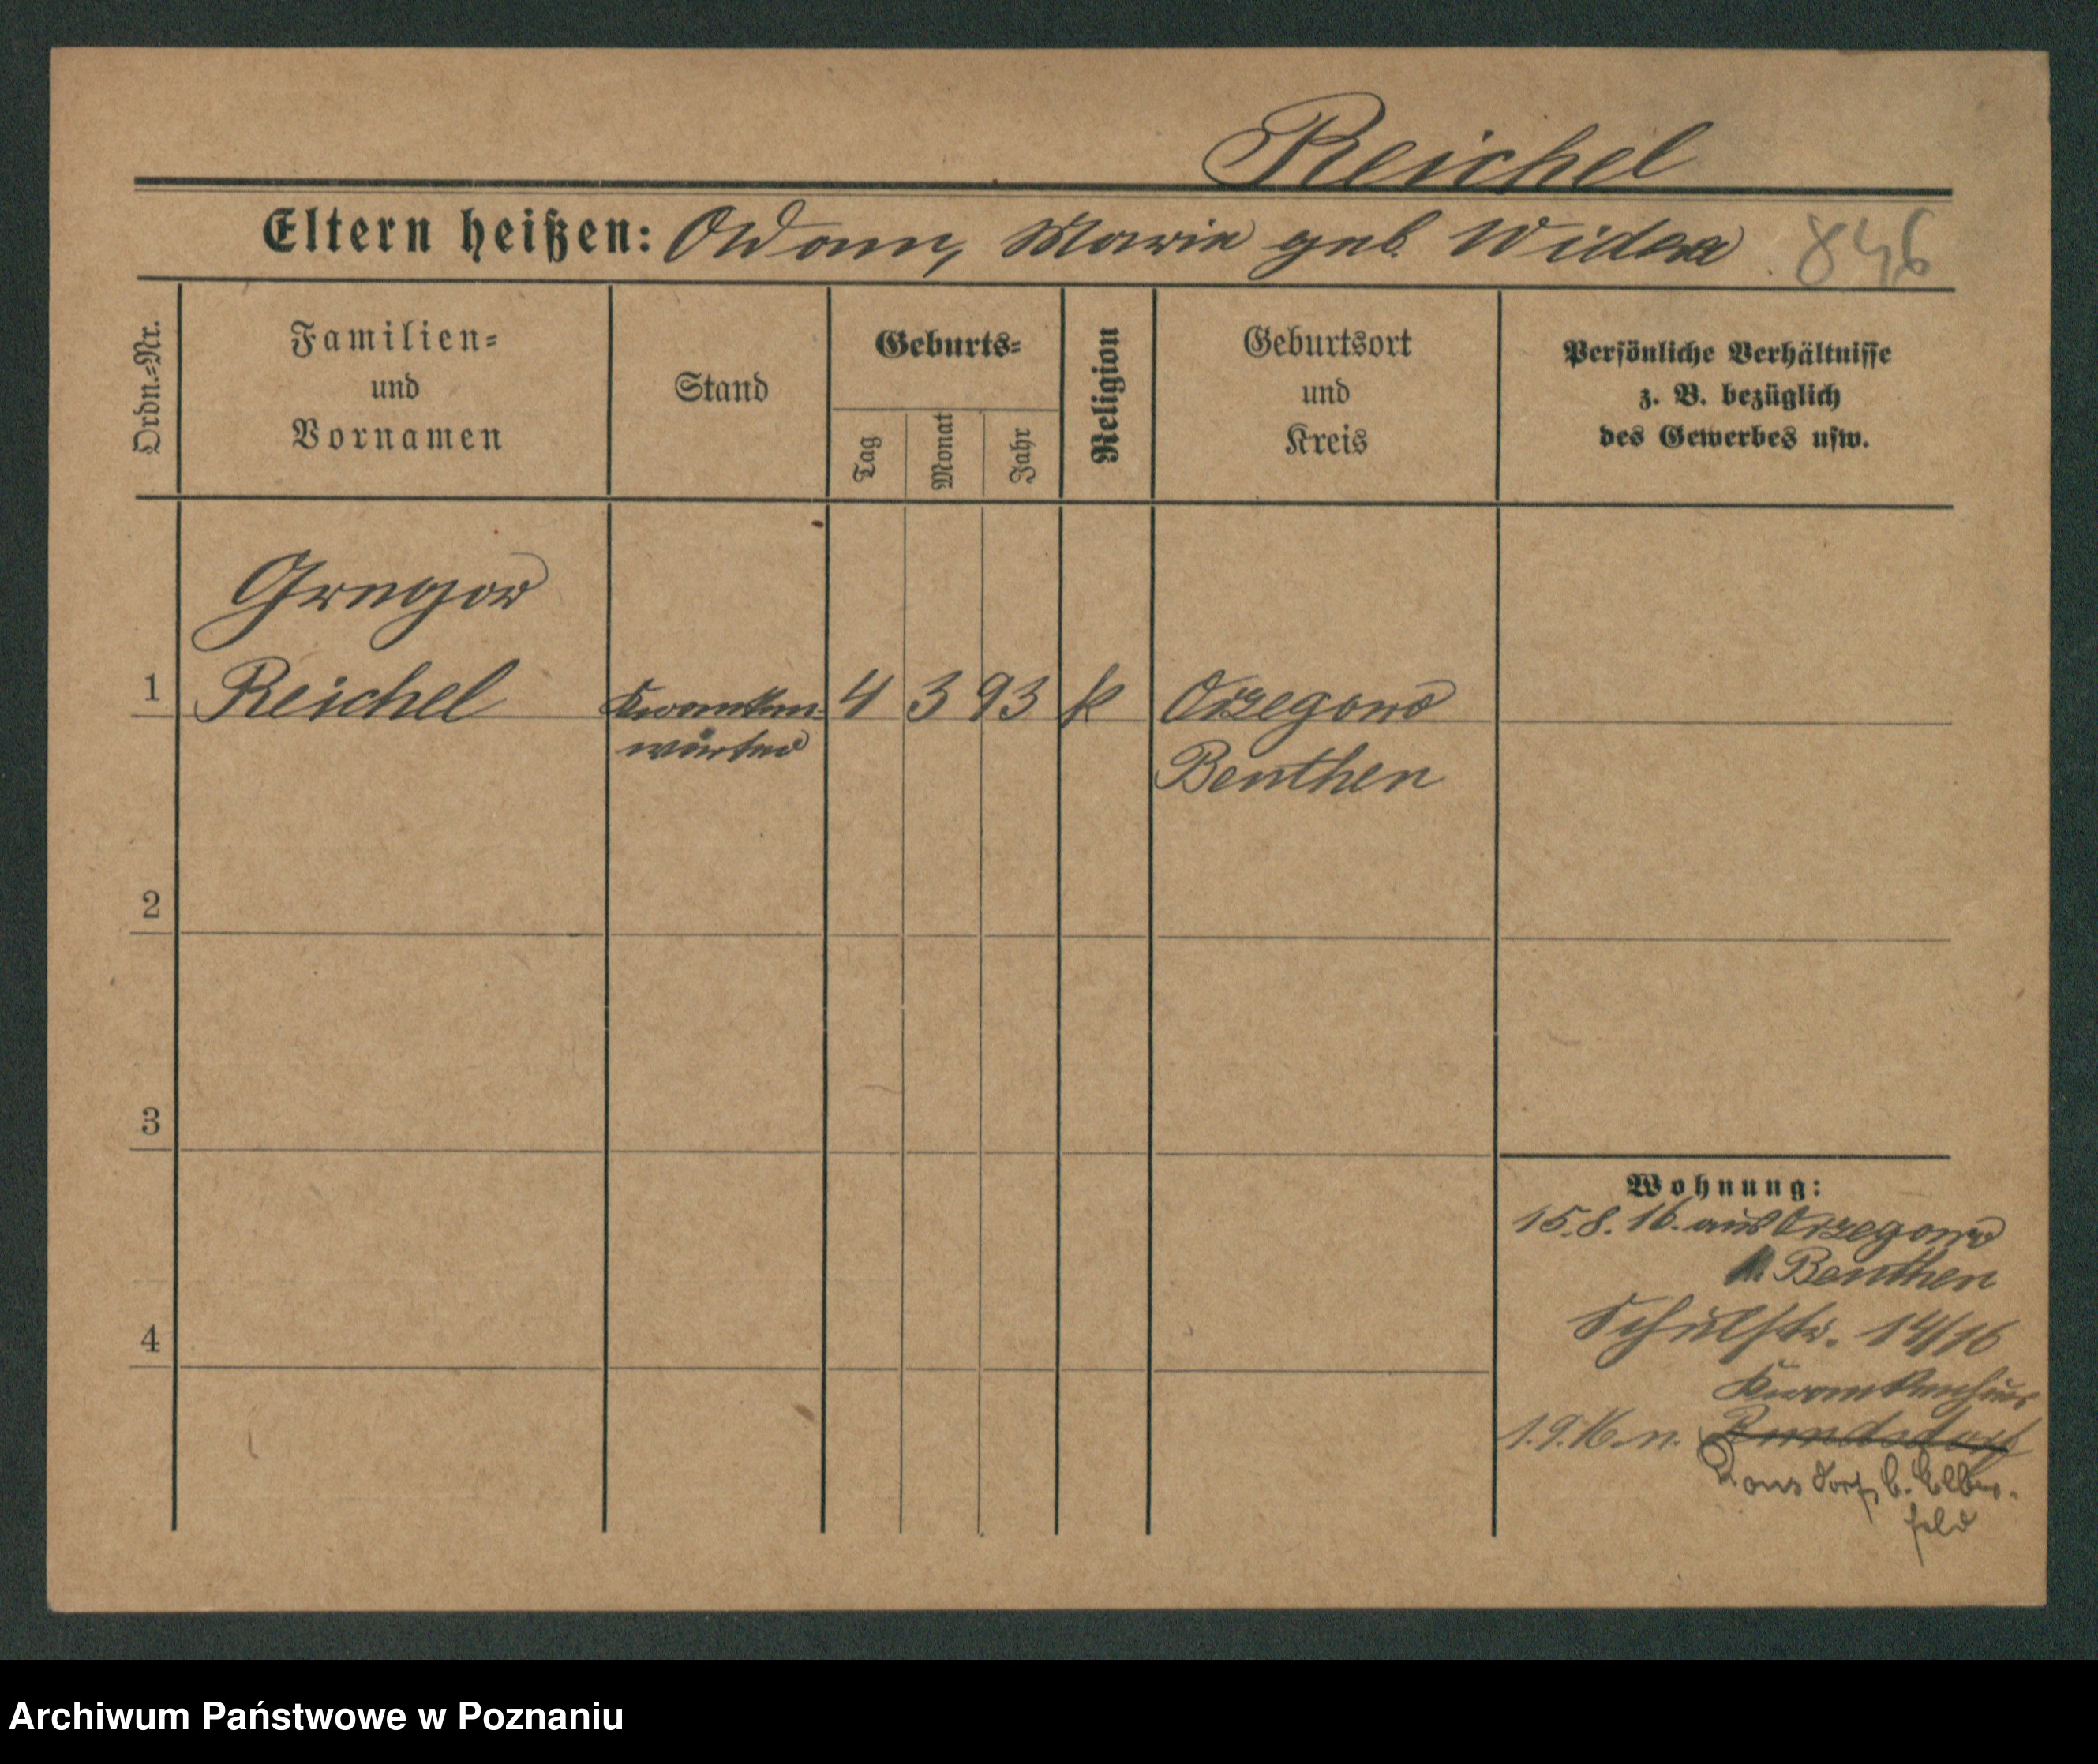 Reichel
Eltern heißen: Adam, Maria geb. Widera 846
Ordn.-Nr.
Familien-
und
Vornamen
Stand
Geburts-
Tag
Monat
Jahr
Religion
Geburtsort
und
Kreis
Persönliche Verhältnisse
z. B. bezüglich
des Gewerbes usw.
Gregor
1 Reichel Kranken- 4 3 93 k Orzegow
wärter Beuthen
2
3
4
Wohnung:
15.8.16. aus Orzegow
Beuthen
Schulstr. 14/16
Krankenhaus
1.9.16. n.
Ronsdorf b. Elber-
feld
Archiwum Państwowe w Poznaniu